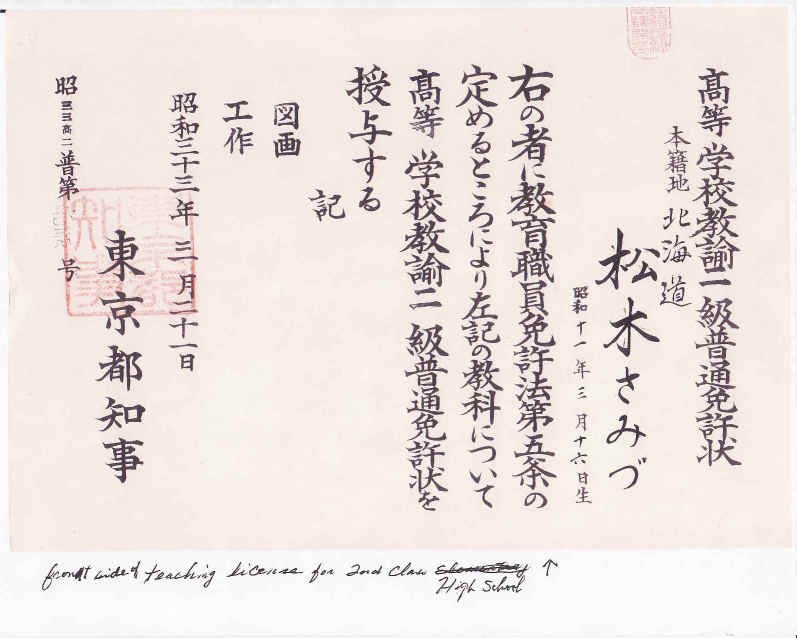 高等学校教諭二級普通免許状
本籍地 北海道
松木さみづ
昭和十一年三月十六日生
右の者に教育職員免許法第五条の
定めるところにより左記の教科について
高等学校教諭二級普通免許状を
授与する
記
図画
工作
昭和三十三年三月二十一日
東京都知事
昭三三高二普第 号
front side of teaching license for 2nd class ↑
High School